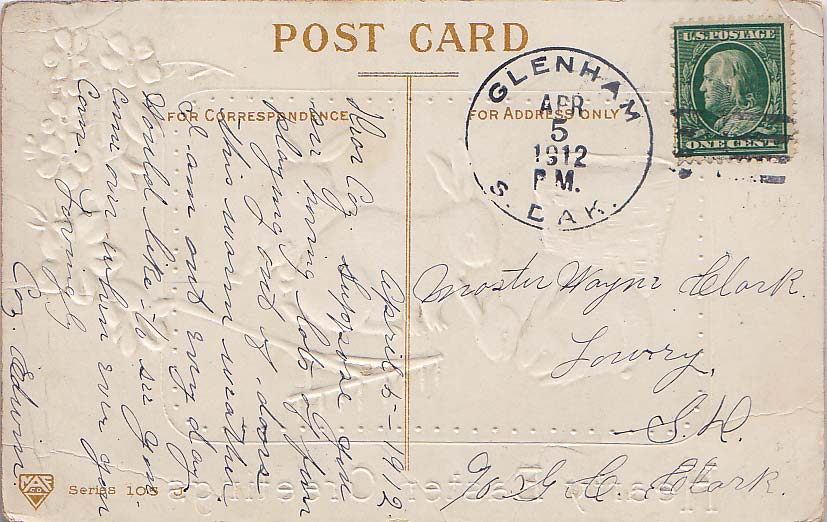 POST CARD
FOR CORRESPONDENCE
FOR ADDRESS ONLY
U.S. POSTAGE
ONE CENT
GLENHAM
APR
5
1912
P.M.
S. DAK.
April 5-1912.
Dear Coz. Suppose you
are having lots of fun
playing out of doors
this warm weather.
I am out every day.
Would like to see you.
Come over when ever you
can. Lovingly
Coz. Edwin.
Master Wayne Clark.
Lowry,
S.D.
% G. C. Clark.
Series 105 J
Hearty Easter Greetings